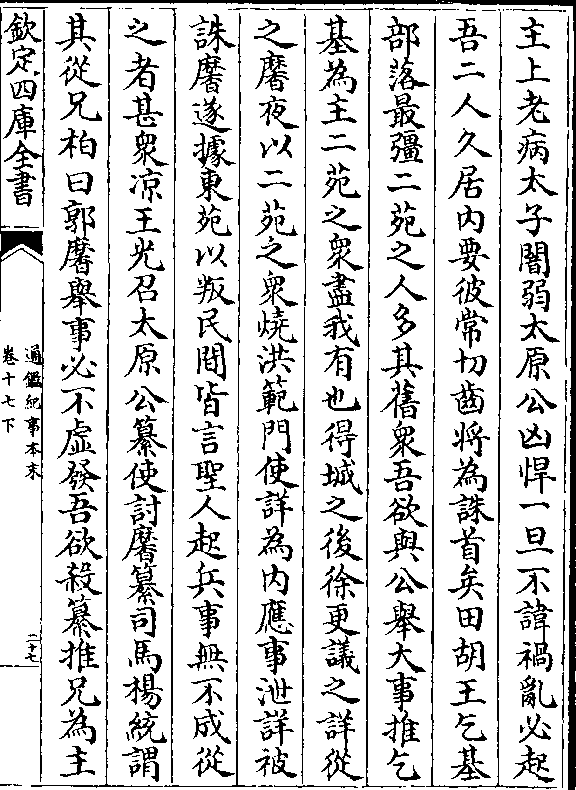 主上老病太子闇弱太原公凶悍一旦不諱禍亂必起
吾二人久居內要彼常切齒將為誅首矣田胡王乞基
部落最彊二苑之人多其舊衆吾欲與公舉大事推乞
基為主二苑之衆盡我有也得城之後徐更議之詳從
之黁夜以二苑之衆燒洪範門使詳為內應事泄詳被
誅黁遂據東苑以叛民間皆言聖人起兵事無不成從
之者甚衆凉王光召太原公纂使討黁纂司馬楊統謂
其從兄柏曰郭黁舉事必不虛發吾欲殺纂推兄為主
欽定四庫全書
通鑑紀事本末
卷十七下
二十七